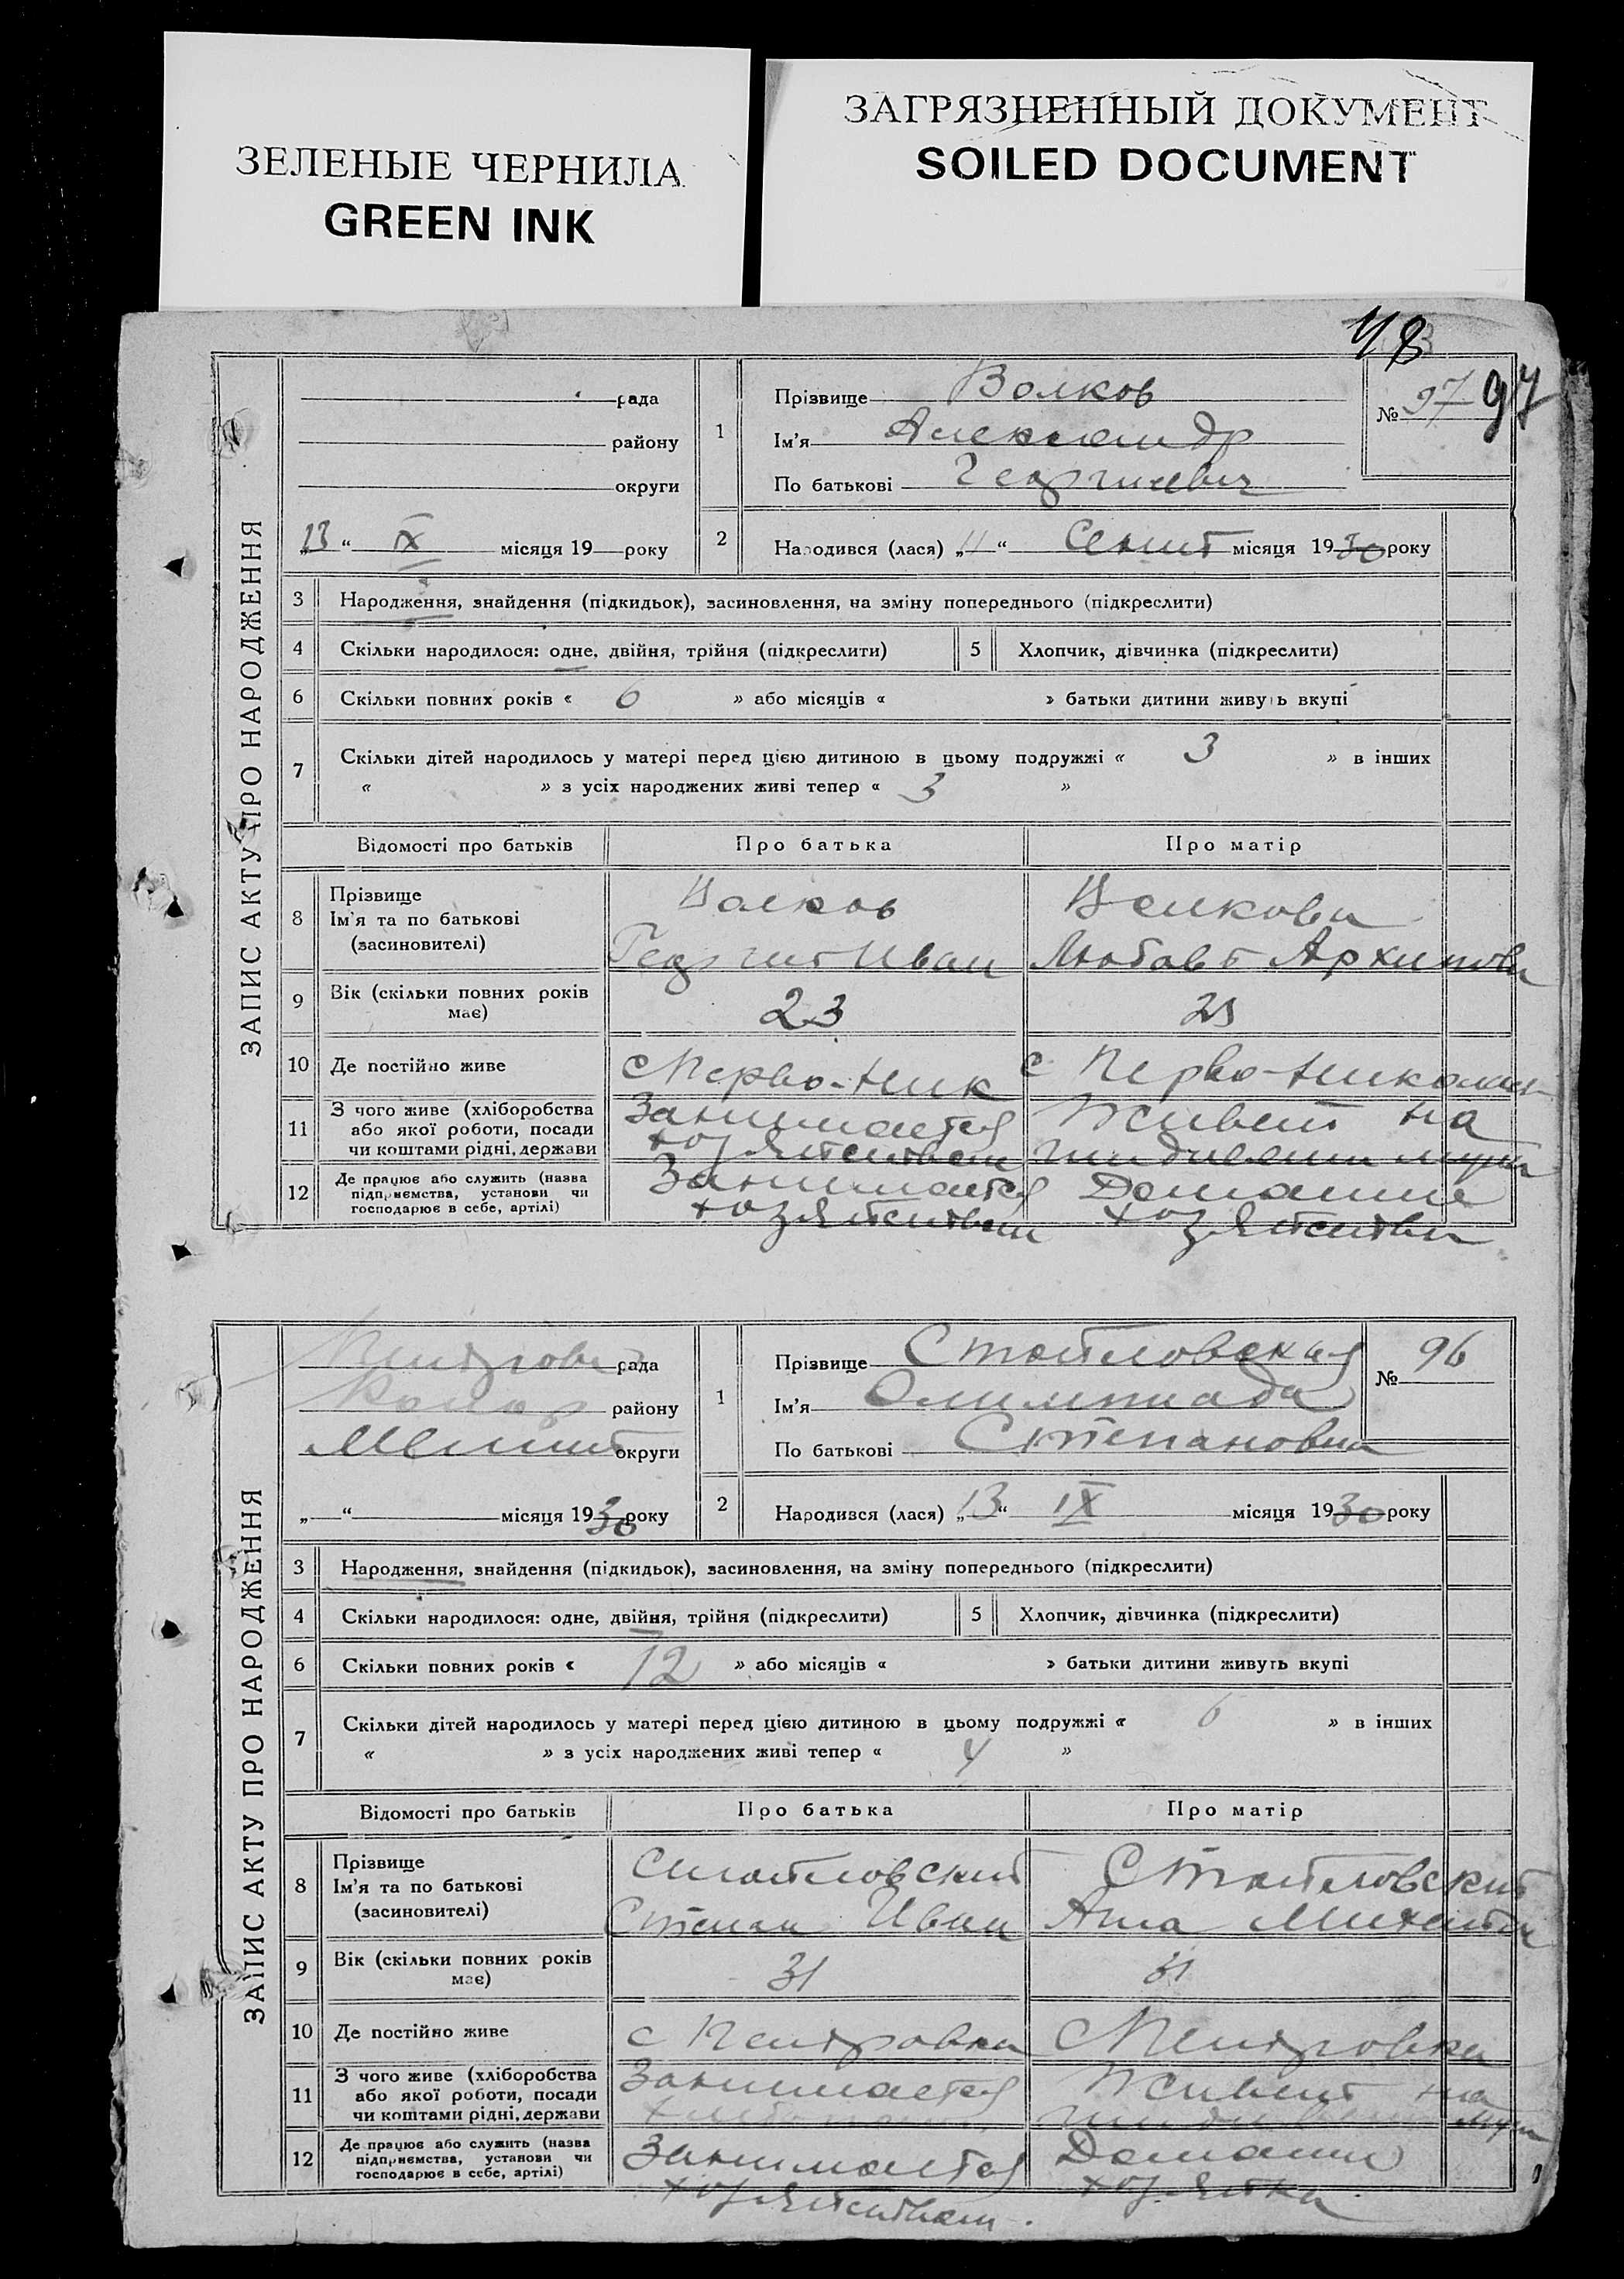 ЗЕЛЕНЫЕ ЧЕРНИЛА
GREEN INK
ЗАГРЯЗНЕННЫЙ ДОКУМЕНТ
SOILED DOCUMENT
97
№ 97
ЗАПИС АКТУ ПРО НАРОДЖЕННЯ
рада
району
округи
„13“ IX місяця 19 року
1
Прізвище Волков
Ім'я Александр
По батькові Георгиевич
2 Народився (лася) „11“ Сент місяця 1930 року
3 Народження, знайдення (підкидьок), засиновлення, на зміну попереднього (підкреслити)
4 Скільки народилося: одне, двійня, трійня (підкреслити) 5 Хлопчик, дівчинка (підкреслити)
6 Скільки повних років « 6 » або місяців « » батьки дитини живуть вкупі
7 Скільки дітей народилось у матері перед цією дитиною в цьому подружжі « 3 » в інших
« » з усіх народжених живі тепер « 3 »
Відомості про батьків Про батька Про матір
8 Прізвище
Ім'я та по батькові
(засиновителі)
Волков
Георгий Иван
Волкова
Любовь Архипова
9 Вік (скільки повних років
має)
23
23
10 Де постійно живе с Перво-Ник с. Перво-Николаев
11 З чого живе (хліборобства
або якої роботи, посади
чи коштами рідні, держави
Занимается
хозяйством
Живет на
иждивении мужа
12 Де працює або служить (назва
підприємства, установи чи
господарює в себе, артілі)
Занимается
хозяйством
Домашне
хозяйства
ЗАПИС АКТУ ПРО НАРОДЖЕННЯ
рада
району
округи
„ “ місяця 1930 року
1
Прізвище Стойловская
Ім'я Олимпиада
По батькові Степановна
№ 96
2 Народився (лася) „13“ IX місяця 1930 року
3 Народження, знайдення (підкидьок), засиновлення, на зміну попереднього (підкреслити)
4 Скільки народилося: одне, двійня, трійня (підкреслити) 5 Хлопчик, дівчинка (підкреслити)
6 Скільки повних років « 12 » або місяців « » батьки дитини живуть вкупі
7 Скільки дітей народилось у матері перед цією дитиною в цьому подружжі « 6 » в інших
« » з усіх народжених живі тепер « 4 »
Відомості про батьків Про батька Про матір
8 Прізвище
Ім'я та по батькові
(засиновителі)
Стойловский
Степан Иван
Стойловский
Анна
9 Вік (скільки повних років
має)
31
31
10 Де постійно живе с Петровка с Петровка
11 З чого живе (хліборобства
або якої роботи, посади
чи коштами рідні, держави
Занимается
Живет на
12 Де працює або служить (назва
підприємства, установи чи
господарює в себе, артілі)
Занимается
хозяйством.
Домашн
хозяйка